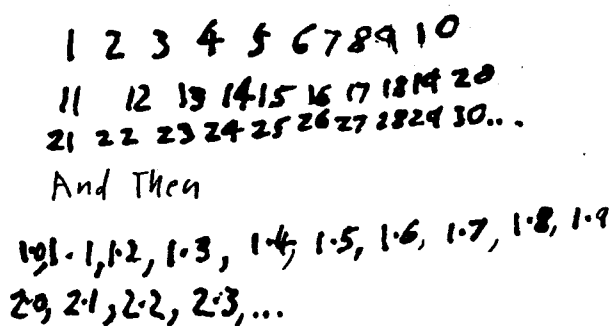 1 2 3 4 5 6 7 8 9 10
11 12 13 14 15 16 17 18 19 20
21 22 23 24 25 26 27 28 29 30...
And Then
1.0, 1.1, 1.2, 1.3, 1.4, 1.5, 1.6, 1.7, 1.8, 1.9
2.0, 2.1, 2.2, 2.3, ...